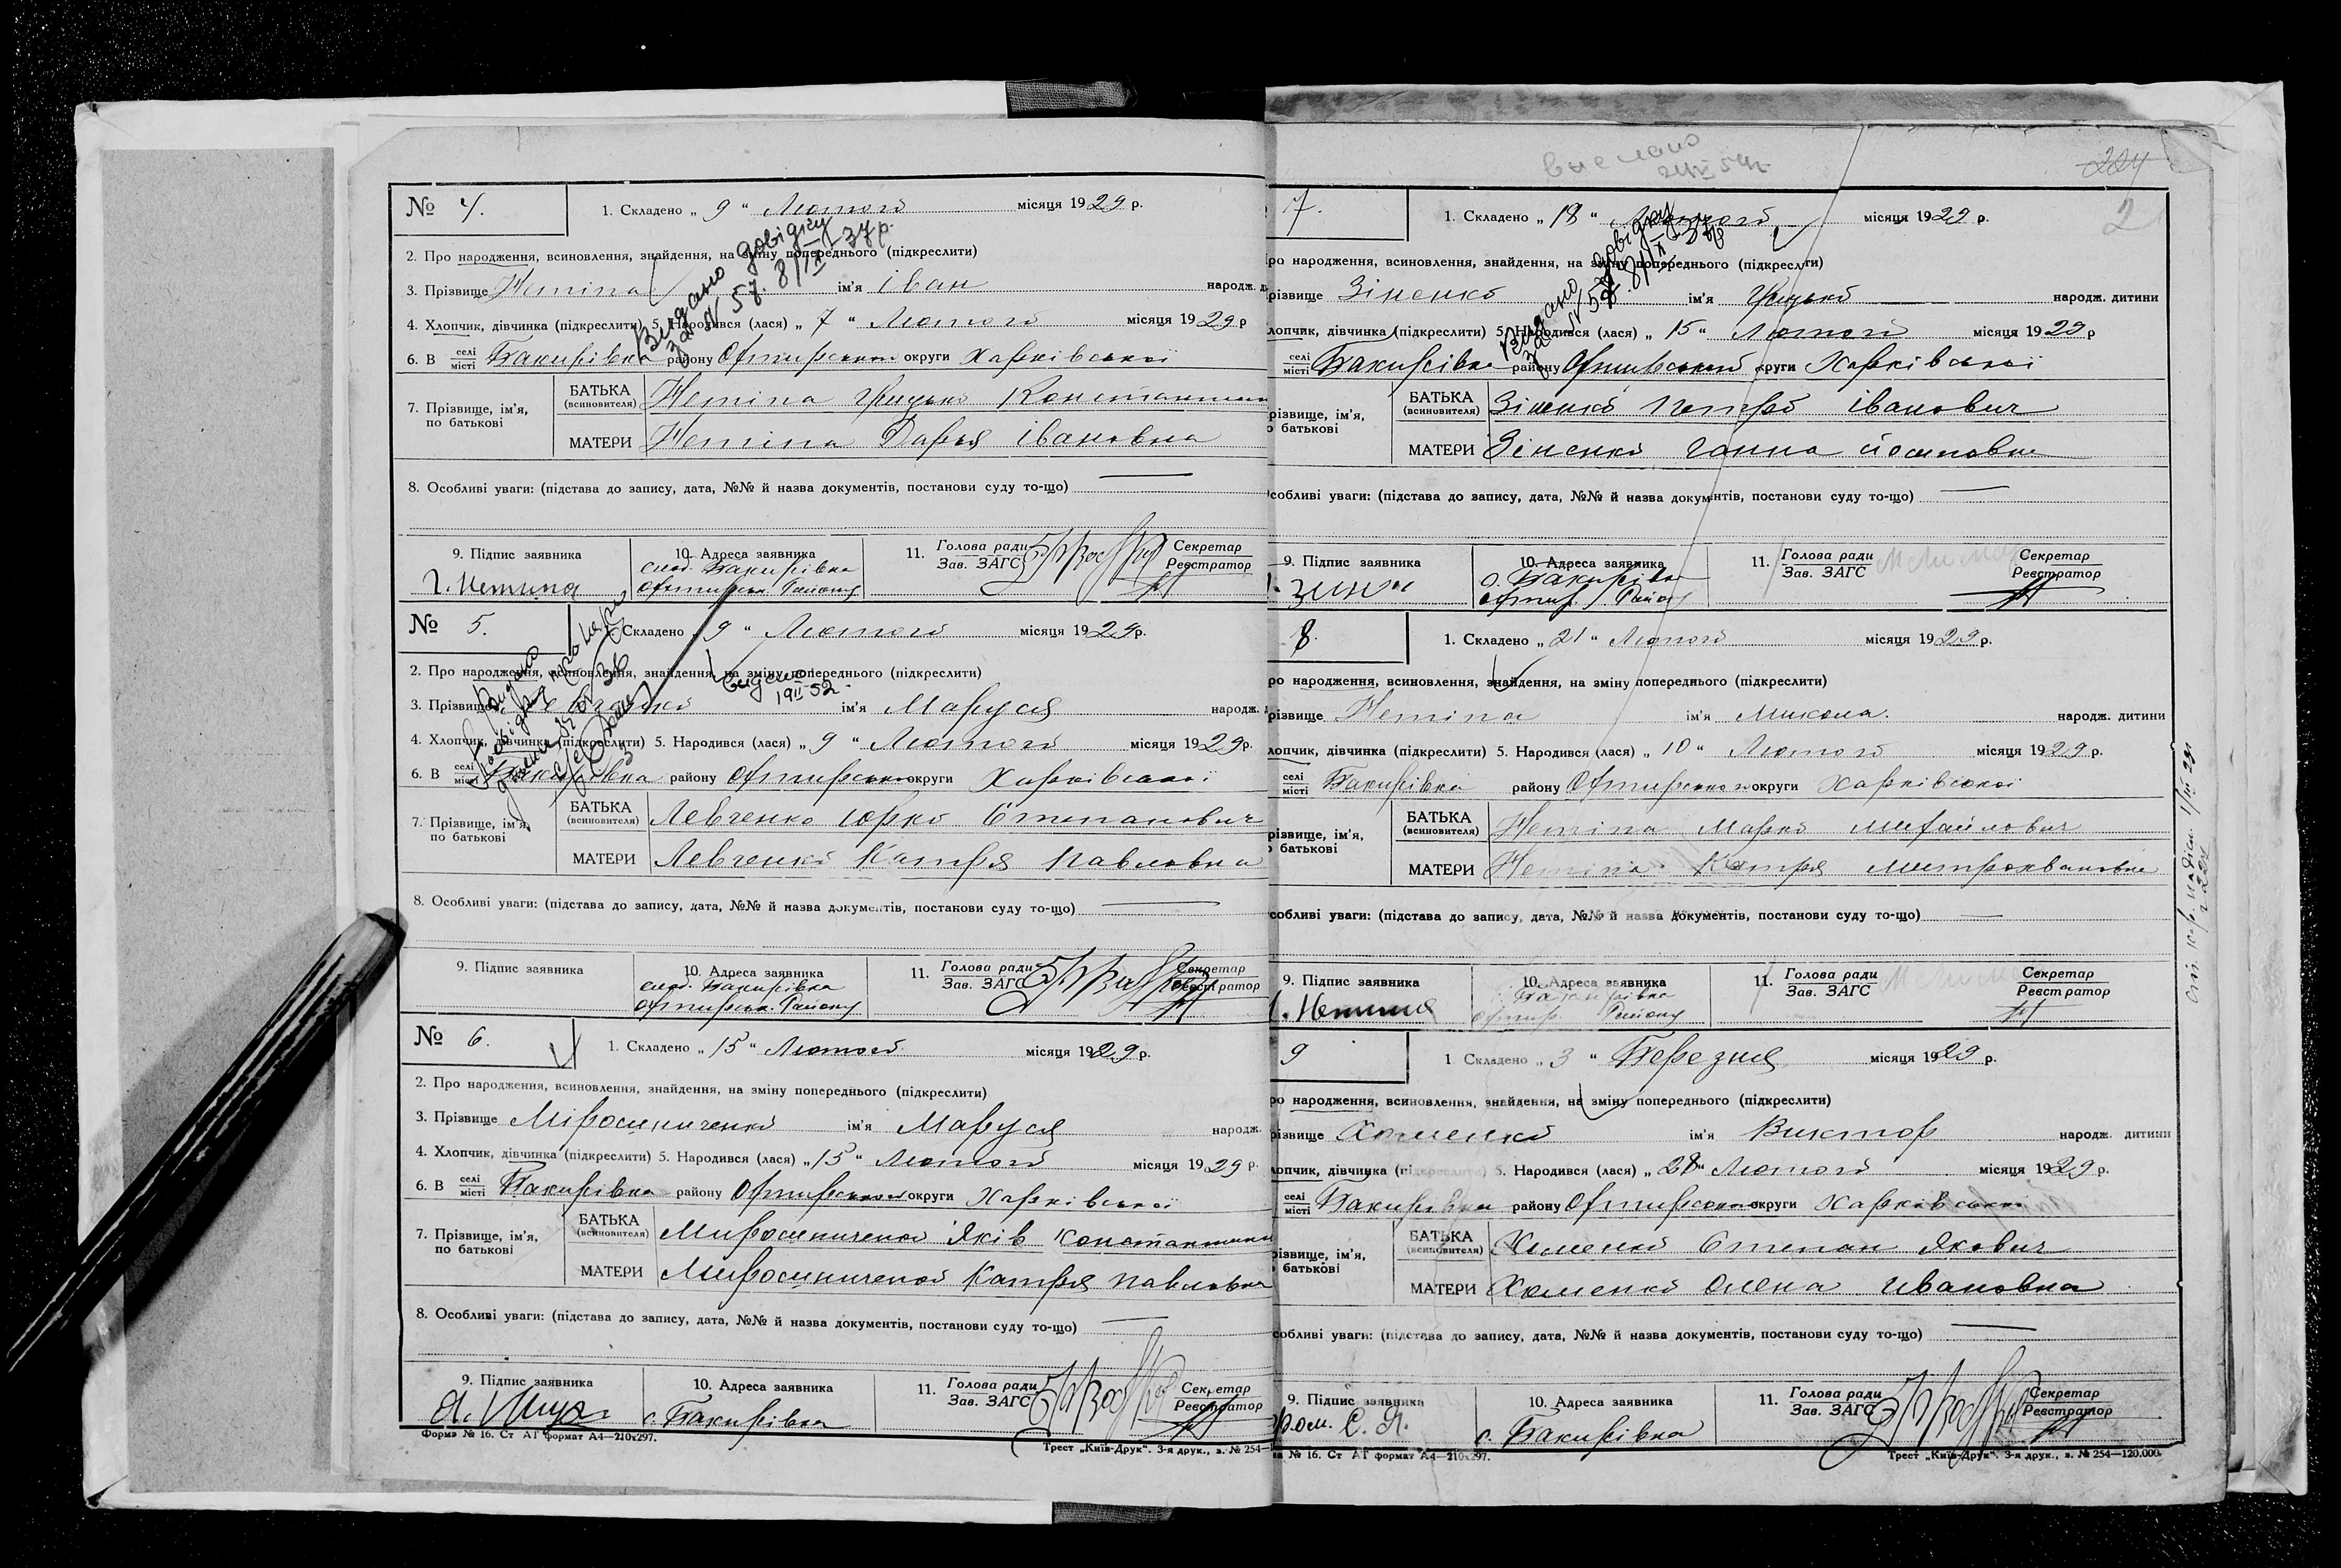 № 4. 1. Складено „ 9 “ Лютого місяця 1929 р.
2. Про народження, всиновлення, знайдення, на зміну попереднього (підкреслити)
Видано довідку
за N 57. 8/IX 37 р.
3. Прізвище Нетіпа ім'я Іван народж.
4. Хлопчик, дівчинка (підкреслити) 5. Народився (лася) „ 7 “ Лютого місяця 1929 р
6. В селі місті Бакирівка району Охтирського округи Харківської
7. Прізвище, ім'я, по батькові
БАТЬКА (всиновителя) Нетіпа Грицько
МАТЕРИ Нетіпа Дарья Івановна
8. Особливі уваги: (підстава до запису, дата, №№ й назва документів, постанови суду то-що)
9. Підпис заявника
10. Адреса заявника слоб. Бакирівка Охтирськ. Району
11. Голова ради Зав. ЗАГС Секретар Реєстратор
№ 5. 1. Складено „ 9 “ Лютого місяця 1929 р.
2. Про народження, всиновлення, знайдення, на зміну попереднього (підкреслити)
видано 19 II 52
3. Прізвище Левченко ім'я Маруся народж.
4. Хлопчик, дівчинка (підкреслити) 5. Народився (лася) „ 9 “ Лютого місяця 1929 р.
6. В селі місті Бакирівка району Охтирського округи Харківської
7. Прізвище, ім'я, по батькові
БАТЬКА (всиновителя) Левченко Юрко Степанович
МАТЕРИ Левченко Катря Павловна
8. Особливі уваги: (підстава до запису, дата, №№ й назва документів, постанови суду то-що)
9. Підпис заявника
10. Адреса заявника слоб. Бакирівка Охтирськ. Району
11. Голова ради Зав. ЗАГС Секретар Реєстратор
№ 6. 1. Складено „ 15 “ Лютого місяця 1929 р.
2. Про народження, всиновлення, знайдення, на зміну попереднього (підкреслити)
3. Прізвище Мірошниченко ім'я Маруся народж.
4. Хлопчик, дівчинка (підкреслити) 5. Народився (лася) „ 15 “ Лютого місяця 1929 р.
6. В селі місті Бакирівка району Охтирського округи Харківської
7. Прізвище, ім'я, по батькові
БАТЬКА (всиновителя) Мирошниченко Яків
МАТЕРИ Мирошниченко Катря Павловна
8. Особливі уваги: (підстава до запису, дата, №№ й назва документів, постанови суду то-що)
9. Підпис заявника
10. Адреса заявника с. Бакирівка
11. Голова ради Зав. ЗАГС Секретар Реєстратор
Форма № 16. Ст АГ формат А4—210х297.
Трест „Київ-Друк“. 3-я друк., з. № 254—
выслано
224
2
7. 1. Складено „ 18 “ Лютого місяця 1929 р.
ро народження, всиновлення, знайдення, на зміну попереднього (підкреслити)
Видано довідку
за N 58. 8/IX 37 р
різвище Зіненко ім'я Грицько народж. дитини
лопчик, дівчинка (підкреслити) 5. Народився (лася) „ 15 “ Лютого місяця 1929 р
селі місті Бакирівка району Охтирський округи Харківської
різвище, ім'я, батькові
БАТЬКА (всиновителя) Зіненко Петро Іванович
МАТЕРИ Зіненко Ганна Йосиповна
собливі уваги: (підстава до запису, дата, №№ й назва документів, постанови суду то-що)
9. Підпис заявника
10. Адреса заявника с. Бакирівка Охтир. Району
11. Голова ради Зав. ЗАГС Секретар Реєстратор
8. 1. Складено „ 21 “ Лютого місяця 1929 р.
ро народження, всиновлення, знайдення, на зміну попереднього (підкреслити)
різвище Нетіпа ім'я Микола. народж. дитини
лопчик, дівчинка (підкреслити) 5. Народився (лася) „ 10 “ Лютого місяця 1929 р.
селі місті Бакирівка району Охтирського округи Харківської
різвище, ім'я, батькові
БАТЬКА (всиновителя) Нетіпа Марко Михайлович
МАТЕРИ Нетіпа Катря Митрохвановна
собливі уваги: (підстава до запису, дата, №№ й назва документів, постанови суду то-що)
9. Підпис заявника
10. Адреса заявника Бакирівка Охтир. Району
11. Голова ради Зав. ЗАГС Секретар Реєстратор
9 1 Складено „ 3 “ Березня місяця 1929 р.
ро народження, всиновлення, знайдення, на зміну попереднього (підкреслити)
різвище Хоменко ім'я Виктор народж. дитини
лопчик, дівчинка (підкреслити) 5. Народився (лася) „ 28 “ Лютого місяця 1929 р.
селі місті Бакирівка району Охтирського округи Харківської
різвище, ім'я, батькові
БАТЬКА (всиновителя) Хоменко Степан Якович
МАТЕРИ Хоменко Олена Ивановна
собливі уваги: (підстава до запису, дата, №№ й назва документів, постанови суду то-що)
9. Підпис заявника
10. Адреса заявника с. Бакирівка
11. Голова ради Зав. ЗАГС Секретар Реєстратор
№ 16. Ст АГ формат А4—210х297.
Трест „Київ-Друк“. 3-я друк., з. № 254—120.000.